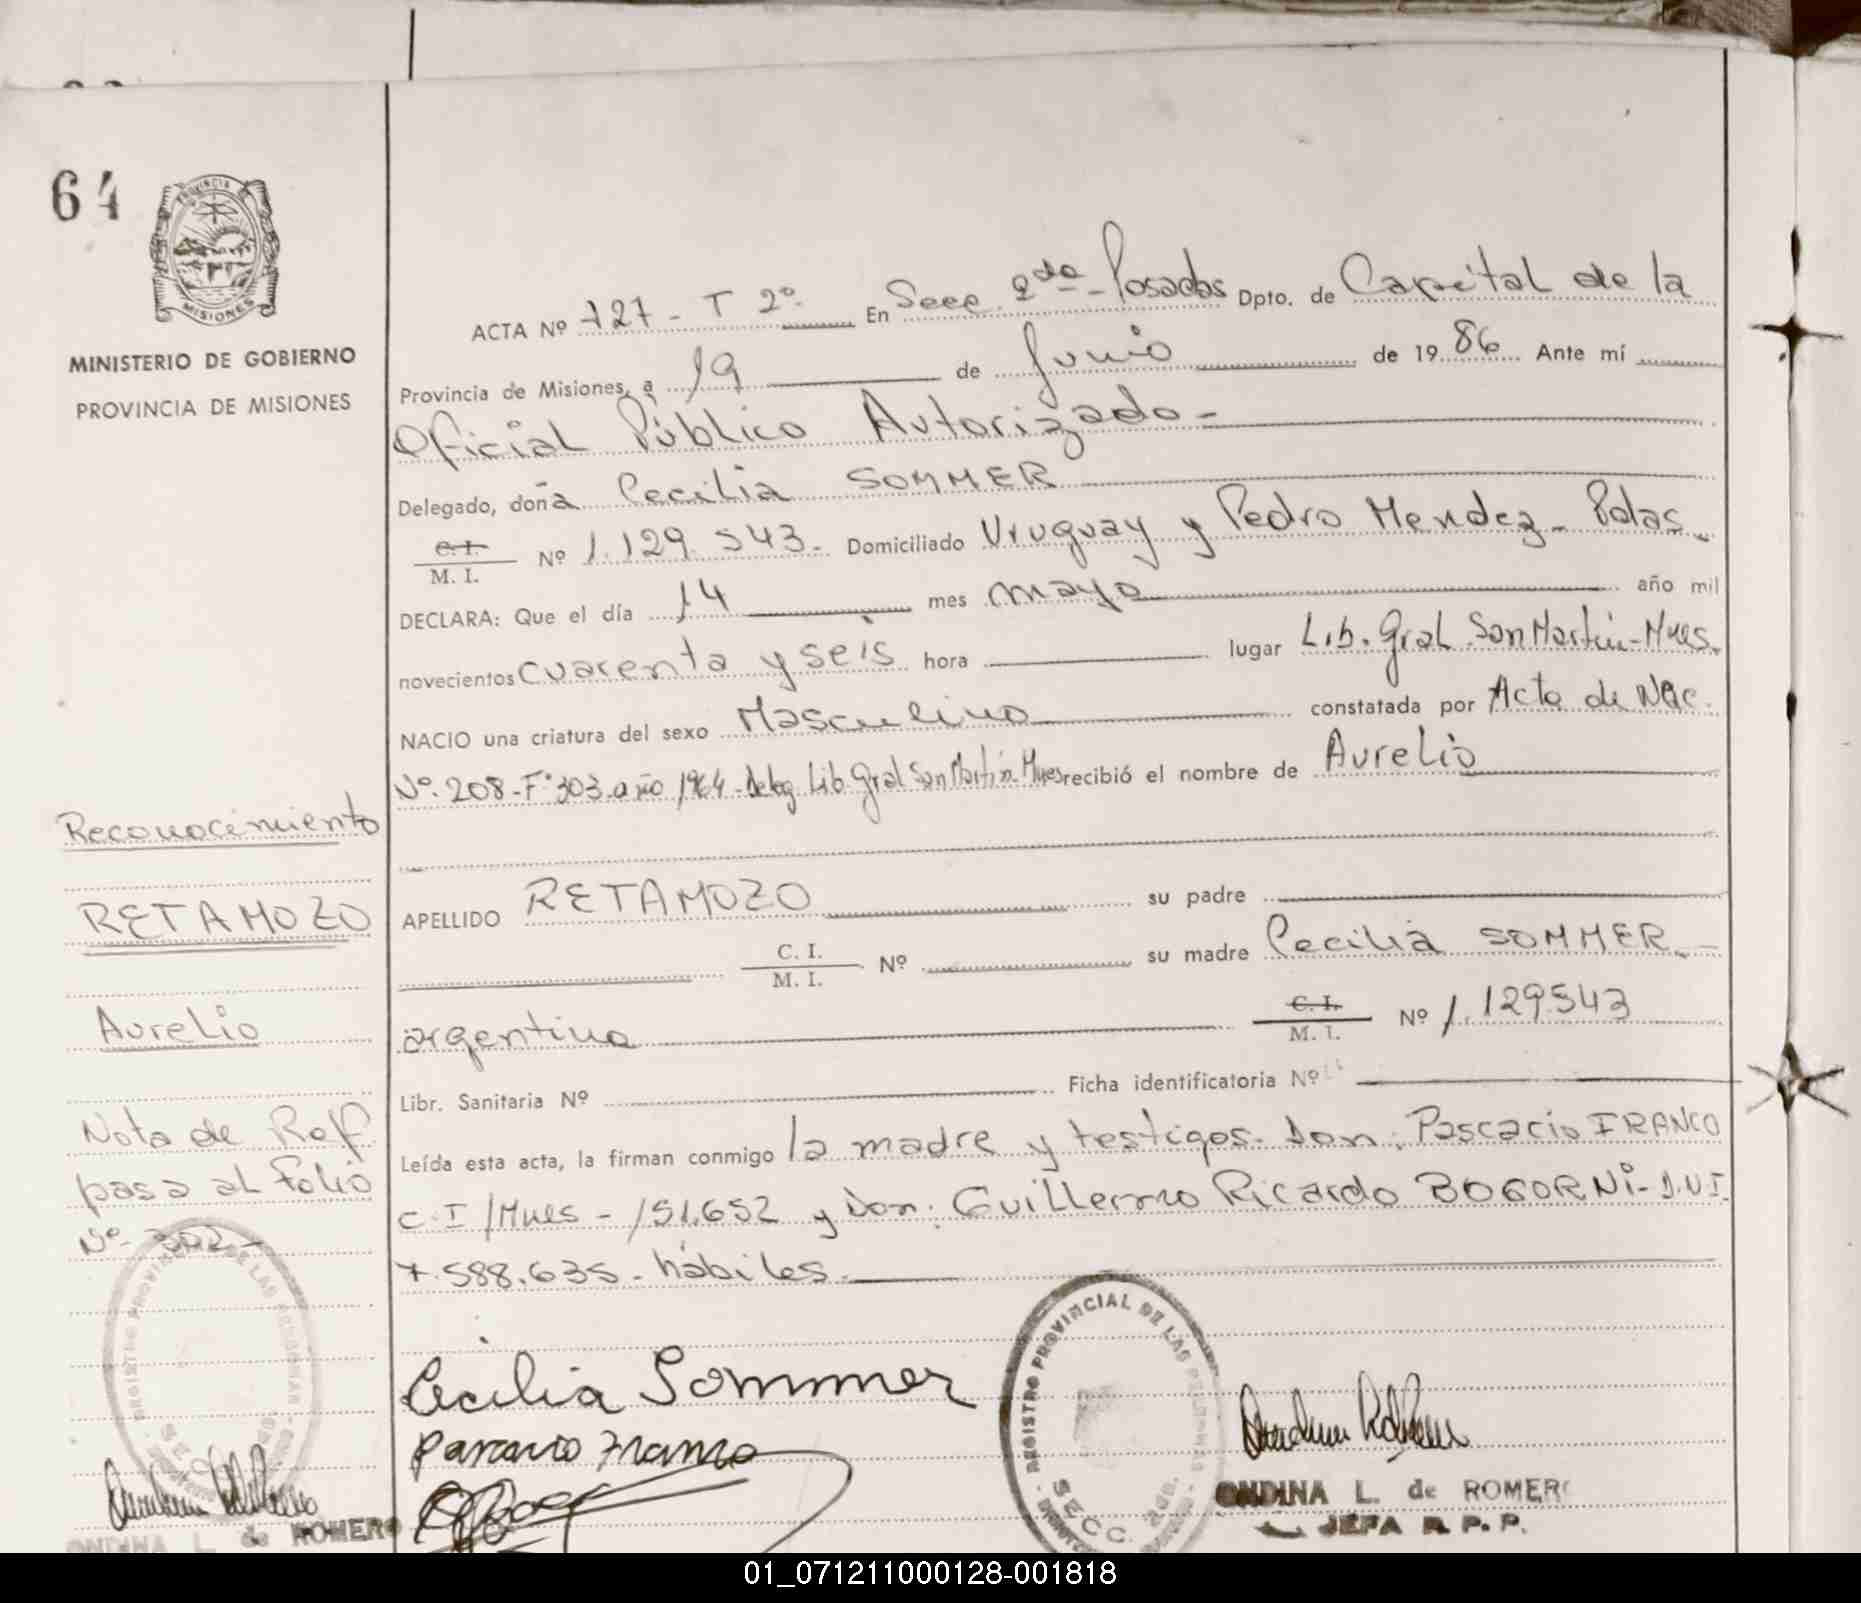 64
PROVINCIA
MISIONES
MINISTERIO DE GOBIERNO
PROVINCIA DE MISIONES
ACTA Nº 727 - T 2º. En Secc. 2da - Posadas Dpto. de Capital de la
Provincia de Misiones, a 19 de Junio de 1986 Ante mí
Oficial Público Autorizado -
Delegado, doña Cecilia SOMMER
C. I. / M. I. Nº 1.129.543 - Domiciliado Uruguay y Pedro Mendez - Pdas.
DECLARA: Que el día 14 mes mayo año mil
novecientos cuarenta y seis hora lugar Lib. Gral San Martin - Mnes.
NACIO una criatura del sexo Masculino constatada por Acta de Nac.
Nº. 208 - Fº 303 - año 1964 - Deleg. Lib. Gral San Martin - Mnes recibió el nombre de Aurelio
Reconocimiento
RETAMOZO
Aurelio
Nota de Ref
pasa al Folio
Nº - 302 -
APELLIDO RETAMOZO su padre
C. I. / M. I. Nº su madre Cecilia SOMMER -
argentina C. I. / M. I. Nº 1.129.543
Libr. Sanitaria Nº Ficha identificatoria Nº
Leída esta acta, la firman conmigo la madre y testigos - Don: Pascacio FRANCO
C. I / Mnes - 151.652 y Don: Guillermo Ricardo BOGORNI - D.N.I.
7.588.635 - hábiles -
Cecilia Sommer
Pascacio Franco
REGISTRO PROVINCIAL DE LAS PERSONAS
SECC. 2da.
ONDINA L. de ROMERO
JEFA R. P. P.
ONDINA L. de ROMERO
01_071211000128-001818